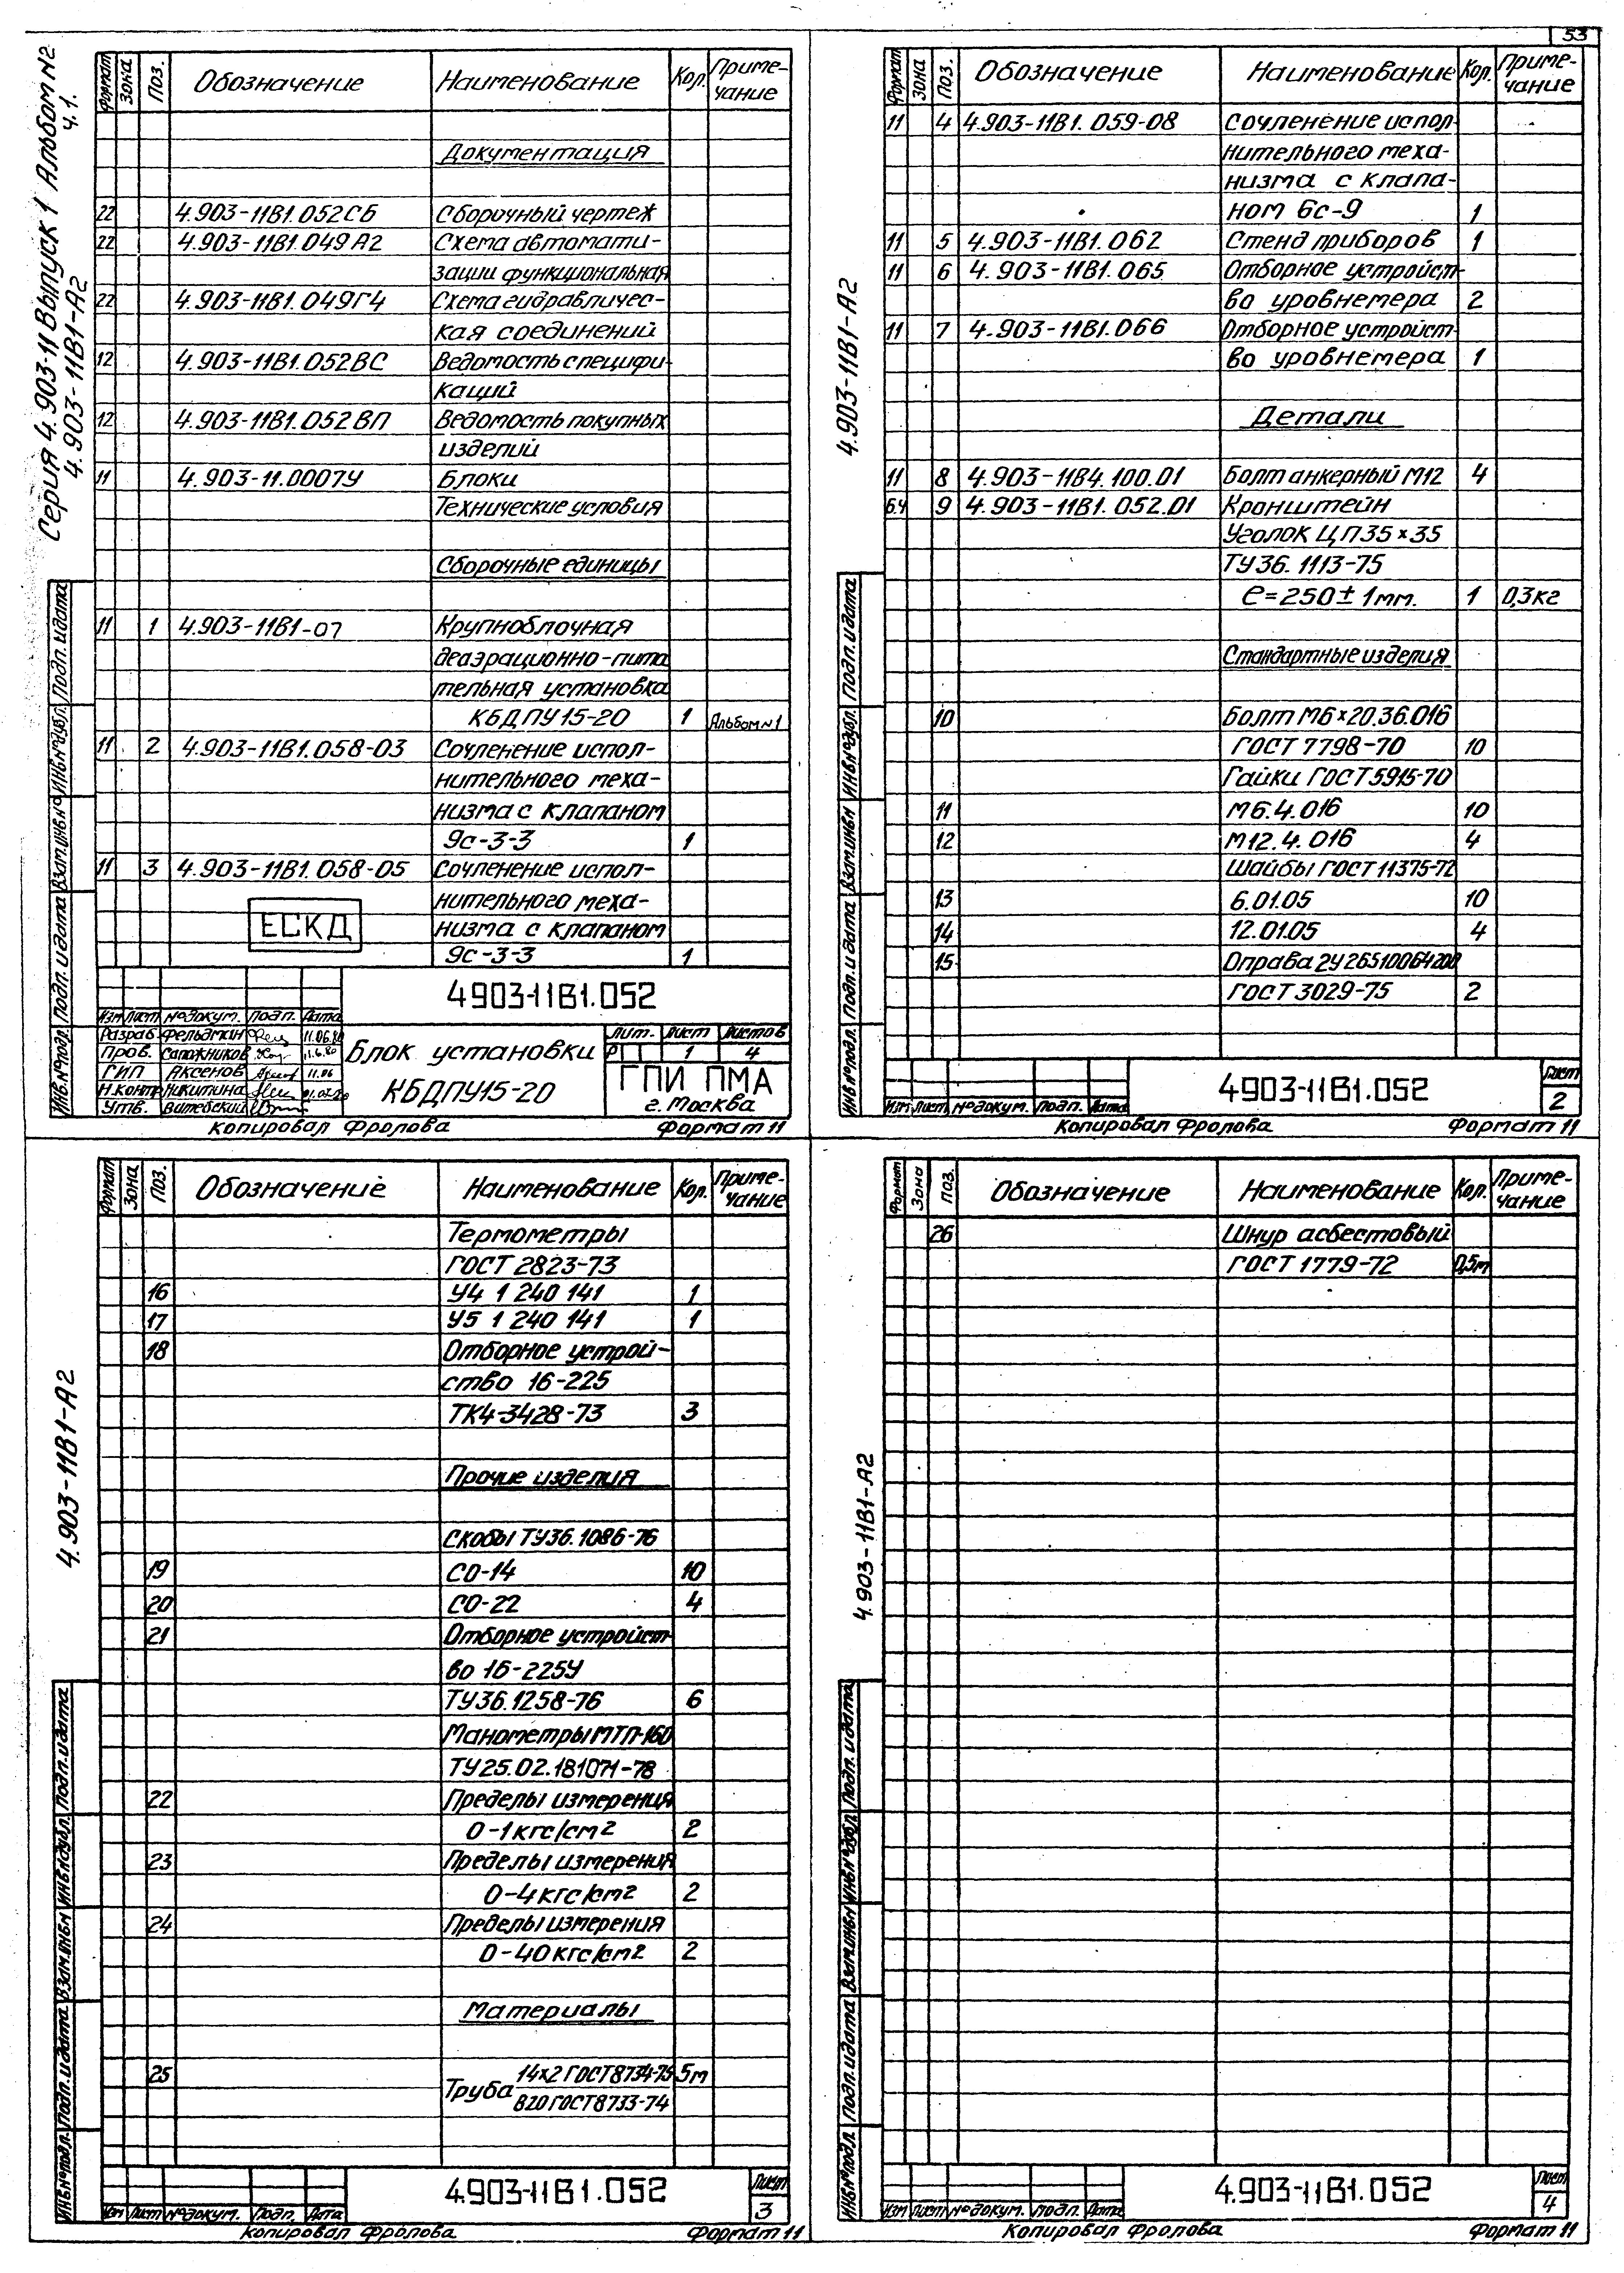 53
Серия 4.903-11 Выпуск 1 Альбом №2
ч.1.
4.903-11В1-А2
Формат Зона Поз. Обозначение Наименование Кол. Приме-
чание
Документация
22 4.903-11В1.052СБ Сборочный чертеж
22 4.903-11В1.049А2 Схема автомати-
зации функциональная
22 4.903-11В1.049Г4 Схема гидравличес-
кая соединений
12 4.903-11В1.052ВС Ведомость специфи-
каций
12 4.903-11В1.052ВП Ведомость покупных
изделий
11 4.903-11.000ТУ Блоки
Технические условия
Сборочные единицы
11 1 4.903-11В1-07 Крупноблочная
деаэрационно-пита
тельная установка
КБДПУ15-20 1 Альбом №1
11 2 4.903-11В1.058-03 Сочленение испол-
нительного меха-
низма с клапаном
9с-3-3 1
11 3 4.903-11В1.058-05 Сочленение испол-
нительного меха-
низма с клапаном
9с-3-3 1
ЕСКД
Инв.№подл. Подп. и дата Взам.инв№ Инв№дубл. Подп. и дата
4.903-11В1.052
Изм Лист №докум. Подп. Дата
Разраб. Фельдман 11.06.80
Пров. Сапожников 11.6.80
ГИП Аксенов 11.06
Н.контр Никитина
Утв. Витебский
Блок установки
КБДПУ15-20
Лит. Лист Листов
Р 1 4
ГПИ ПМА
г. Москва
Копировал Фролова Формат 11
4.903-11В1-А2
Формат Зона Поз. Обозначение Наименование Кол. Приме-
чание
11 4 4.903-11В1.059-08 Сочленение испол-
нительного меха-
низма с клапа-
ном 6с-9 1
11 5 4.903-11В1.062 Стенд приборов 1
11 6 4.903-11В1.065 Отборное устройст-
во уровнемера 2
11 7 4.903-11В1.066 Отборное устройст-
во уровнемера 1
Детали
11 8 4.903-11В4.100.01 Болт анкерный М12 4
БЧ 9 4.903-11В1.052.01 Кронштейн
Уголок ЦП35×35
ТУ36.1113-75
ℓ=250±1мм. 1 0,3кг
Стандартные изделия
10 Болт М6×20.36.016
ГОСТ 7798-70 10
Гайки ГОСТ5915-70
11 М6.4.016 10
12 М12.4.016 4
Шайбы ГОСТ 11375-72
13 6.01.05 10
14 12.01.05 4
15 Оправа 2У26510064200
ГОСТ3029-75 2
Инв№подл. Подп. и дата Взам.инв№ Инв№дубл. Подп. и дата
Изм Лист №докум. Подп. Дата
4.903-11В1.052
Лист
2
Копировал Фролова Формат 11
4.903-11В1-А2
Формат Зона Поз. Обозначение Наименование Кол. Приме-
чание
Термометры
ГОСТ 2823-73
16 У4 1 240 141 1
17 У5 1 240 141 1
18 Отборное устрой-
ство 16-225
ТК4-3428-73 3
Прочие изделия
Скобы ТУ36.1086-76
19 СО-14 10
20 СО-22 4
21 Отборное устройст-
во 16-225У
ТУ36.1258-76 6
Манометры МТП-160
ТУ25.02.181071-78
22 Пределы измерения
0-1кгс/см2 2
23 Пределы измерения
0-4кгс/см2 2
24 Пределы измерения
0-40кгс/см2 2
Материалы
25 Труба 14х2 ГОСТ8734-75 5м
В20 ГОСТ8733-74
Инв№подл. Подп. и дата Взам.инв№ Инв№дубл. Подп. и дата
Изм Лист №докум. Подп. Дата
4.903-11В1.052
Лист
3
Копировал Фролова Формат 11
4.903-11В1-А2
Формат Зона Поз. Обозначение Наименование Кол. Приме-
чание
26 Шнур асбестовый
ГОСТ 1779-72 0,5м
Инв№подл. Подп. и дата Взам.инв№ Инв№дубл. Подп. и дата
Изм Лист №докум. Подп. Дата
4.903-11В1.052
Лист
4
Копировал Фролова Формат 11